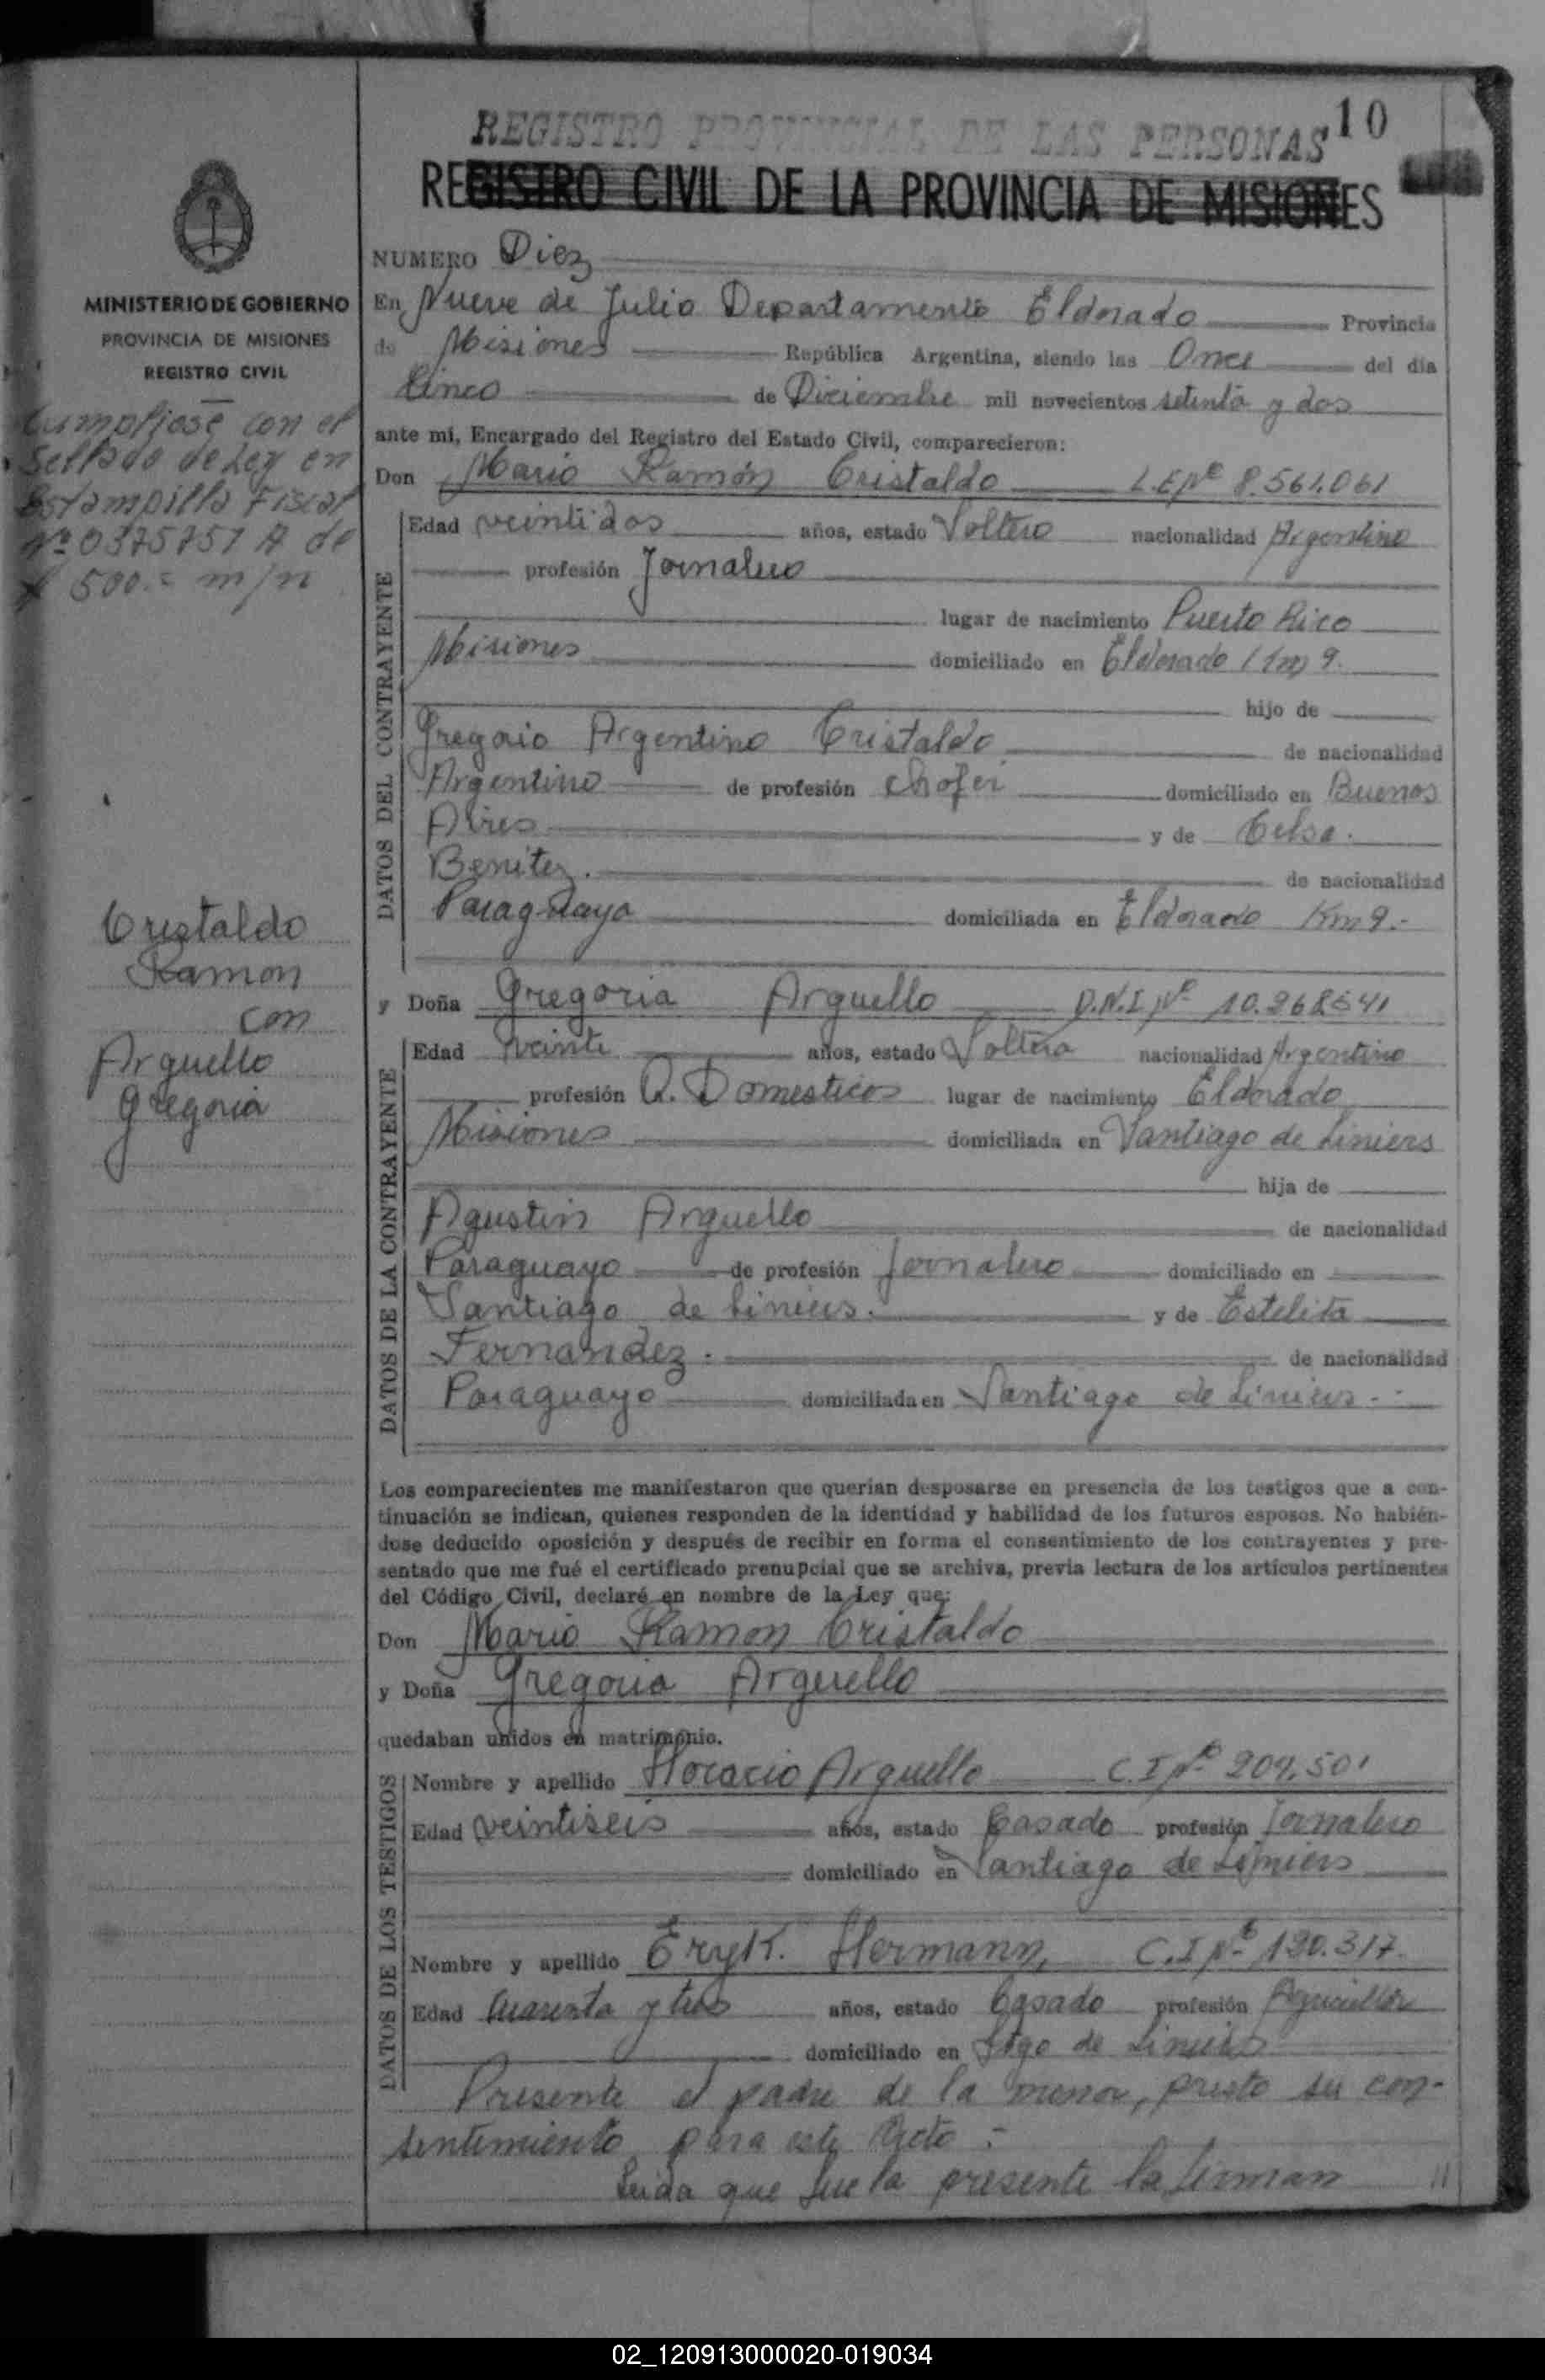 REGISTRO PROVINCIAL DE LAS PERSONAS 10
REGISTRO CIVIL DE LA PROVINCIA DE MISIONES
MINISTERIO DE GOBIERNO
PROVINCIA DE MISIONES
REGISTRO CIVIL
Cumpliose con el
Sellado de Ley en
Estampilla Fiscal
Nº 0375757 A de
$ 500.= m/n
Cristaldo
Ramon
con
Arguello
Gregoria
NUMERO Diez
En Nueve de Julio Departamento Eldorado Provincia
de Misiones República Argentina, siendo las Once del día
Cinco de Diciembre mil novecientos setenta y dos
ante mi, Encargado del Registro del Estado Civil, comparecieron:
Don Mario Ramón Cristaldo L.E Nº 8.561.061
DATOS DEL CONTRAYENTE
Edad veintidos años, estado Soltero nacionalidad Argentino
profesión Jornalero
lugar de nacimiento Puerto Rico
Misiones domiciliado en Eldorado Km 9.
hijo de
Gregorio Argentino Cristaldo de nacionalidad
Argentino de profesión Chofer domiciliado en Buenos
Aires y de Celsa.
Benitez. de nacionalidad
Paraguaya domiciliada en Eldorado Km 9.-
y Doña Gregoria Arguello D.N.I Nº 10.268541
DATOS DE LA CONTRAYENTE
Edad veinte años, estado Soltera nacionalidad Argentino
profesión Q. Domesticos lugar de nacimiento Eldorado
Misiones domiciliada en Santiago de Liniers
hija de
Agustin Arguello de nacionalidad
Paraguayo de profesión Jornalero domiciliado en
Santiago de Liniers. y de Estelita
Fernandez. de nacionalidad
Paraguayo domiciliada en Santiago de Liniers.-
Los comparecientes me manifestaron que querían desposarse en presencia de los testigos que a con-
tinuación se indican, quienes responden de la identidad y habilidad de los futuros esposos. No habién-
dose deducido oposición y después de recibir en forma el consentimiento de los contrayentes y pre-
sentado que me fué el certificado prenupcial que se archiva, previa lectura de los artículos pertinentes
del Código Civil, declaré en nombre de la Ley que:
Don Mario Ramon Cristaldo
y Doña Gregoria Arguello
quedaban unidos en matrimonio.
DATOS DE LOS TESTIGOS
Nombre y apellido Horacio Arguello C.I Nº 209.501
Edad veintiseis años, estado Casado profesión Jornalero
domiciliado en Santiago de Liniers
Nombre y apellido Eryk. Hermann, C.I Nº 120.317.
Edad Cuarenta y tres años, estado Casado profesión Agricultor
domiciliado en Stgo de Liniers
Presente el padre de la menor, presto su con-
sentimiento para este Acto.-
Leida que fue la presente la firman //
02_120913000020-019034